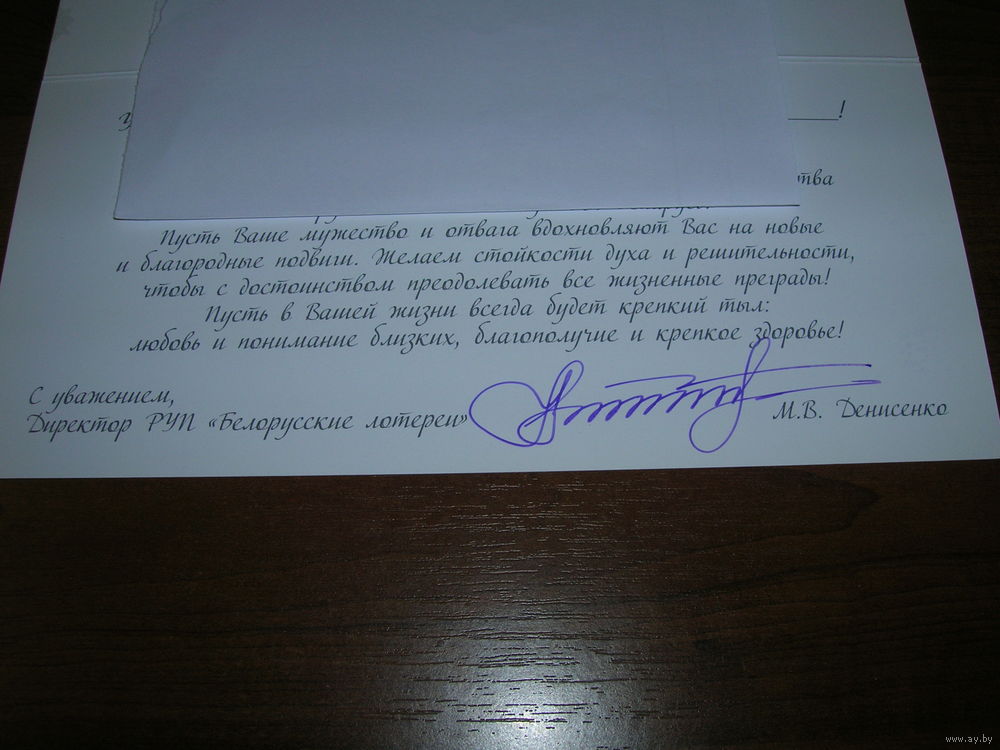 !
Пусть Ваше мужество и отвага вдохновляют Вас на новые
и благородные подвиги. Желаем стойкости духа и решительности,
чтобы с достоинством преодолевать все жизненные преграды!
Пусть в Вашей жизни всегда будет крепкий тыл:
любовь и понимание близких, благополучие и крепкое здоровье!
С уважением,
Директор РУП «Белорусские лотереи» М.В. Денисенко
www.ay.by